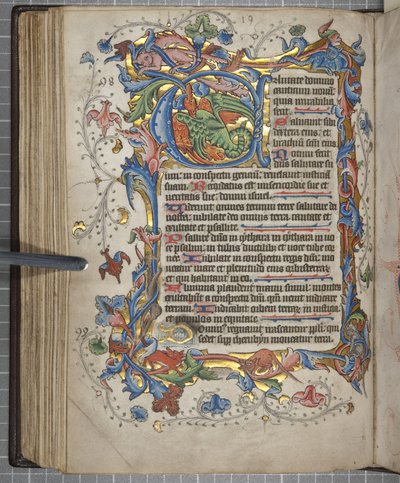 19
98
Cantate domino
canticum novum
quia mirabilia
fecit.
Saluauit sibi
dextera eius: et
brachium sanctum eius.
Notum fecit
dns salutare su
um: in conspectu gentium
suam. Recordatus est misericordie sue et
ueritatis sue: domui israel.
Viderunt omnes termini terre salutare dei
nostri: iubilate deo omnis terra cantate et
exultate et psallite.
Psallite dno in cythara in cythara et uo
ce psalmi: in tubis ductilibus et uoce tube cor
nee. Iubilate in conspectu regis dni: mo
ueatur mare et plenitudo eius orbis terrarum
et qui habitant in eo.
Flumina plaudent manu simul: montes
exultabunt a conspectu dni: qm uenit iudicare
terram. Iudicabit orbem terrarum in iusticia
et populos in equitate.
99
Dominus regnauit irascantur ppli: qui
sedet sup cherubyn moueatur terra.